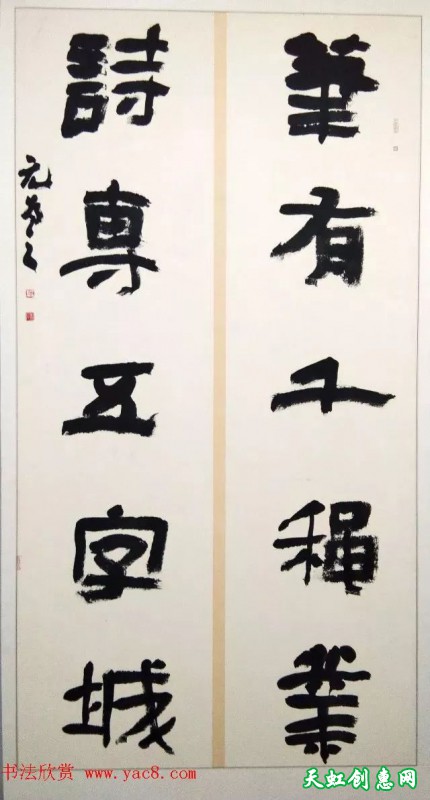 筆有千穐業
詩專五字城
书法欣赏 www.yac8.com
天虹创惠网